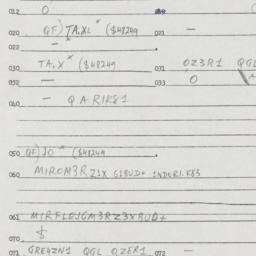 012 O
020 GF) TA.XL* ($48249 021 —
022 —
030 TA.X* ($48249 031 OZ3R1 QGL
032 — 033 O
040 — QARIK81
050 GF) JO* ($48249
060 MIROM3RZ1X G1BUD+ 1NDLR1.K83
061 MIRFLEJGM3RZ3XBUD+
070 $
071 GRE4ZN1 QGL OZER1 072 —